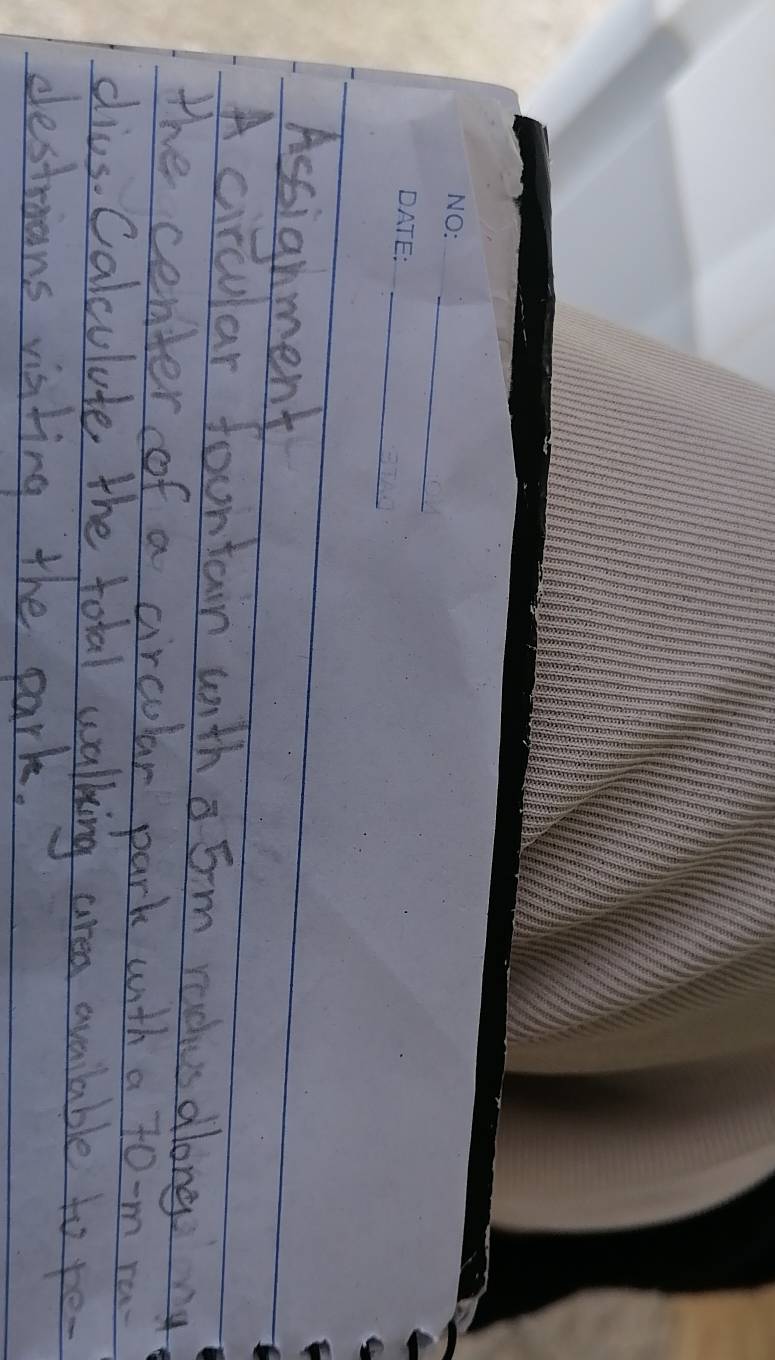 NO:
DATE:
Assignment
A circular fountain with a 5m radius along
the center of a circular park with a 70-m ra-
dius. Calculate the total walking area available to pe-
destrians visting the park.